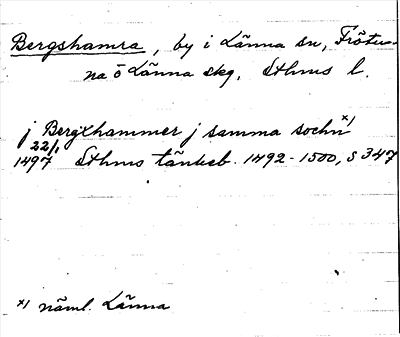 Bergshamra, by i Länna sn, Frötu-
na o Länna skg, Sthms l.
j Bergxhammer j samma sochn x)
22/1
1497 Sthms tänkeb. 1492-1500, s 347
x) näml. Länna